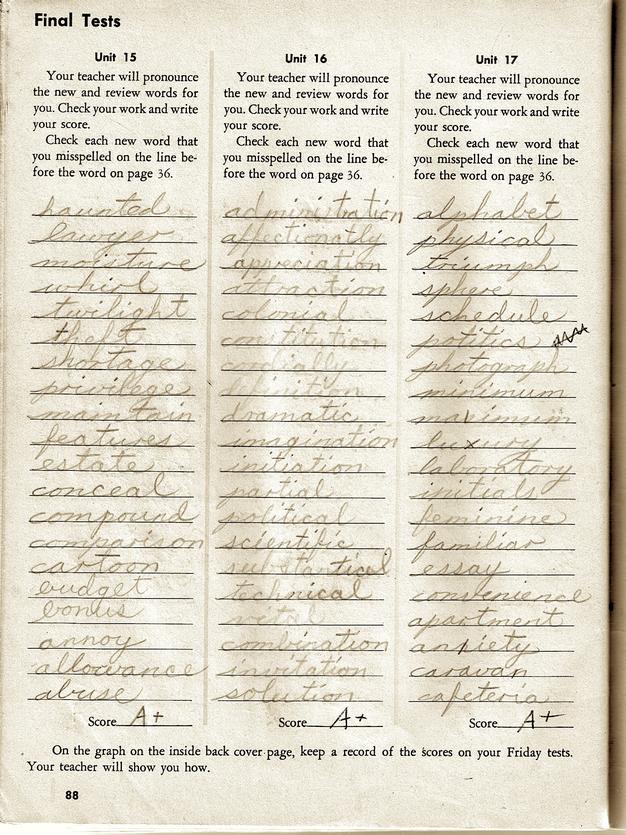 Final Tests
Unit 15
Your teacher will pronounce
the new and review words for
you. Check your work and write
your score.
Check each new word that
you misspelled on the line be-
fore the word on page 36.
haunted
lawyer
moisture
whirl
twilight
theft
shortage
privilege
maintain
features
estate
conceal
compound
comparison
cartoon
budget
bonus
annoy
allowance
abuse
Score A+
Unit 16
Your teacher will pronounce
the new and review words for
you. Check your work and write
your score.
Check each new word that
you misspelled on the line be-
fore the word on page 36.
administration
affectionatly
appreciation
attraction
colonial
constitution
cordially
definition
dramatic
imagination
initiation
partial
political
scientific
substantical
technical
vital
combination
invitation
solution
Score A+
Unit 17
Your teacher will pronounce
the new and review words for
you. Check your work and write
your score.
Check each new word that
you misspelled on the line be-
fore the word on page 36.
alphabet
physical
triumph
sphere
schedule
politics
photograph
minimum
maximum
luxury
laboratory
initials
feminine
familiar
essay
convenience
apartment
anxiety
caravan
cafeteria
Score A+
On the graph on the inside back cover page, keep a record of the scores on your Friday tests.
Your teacher will show you how.
88